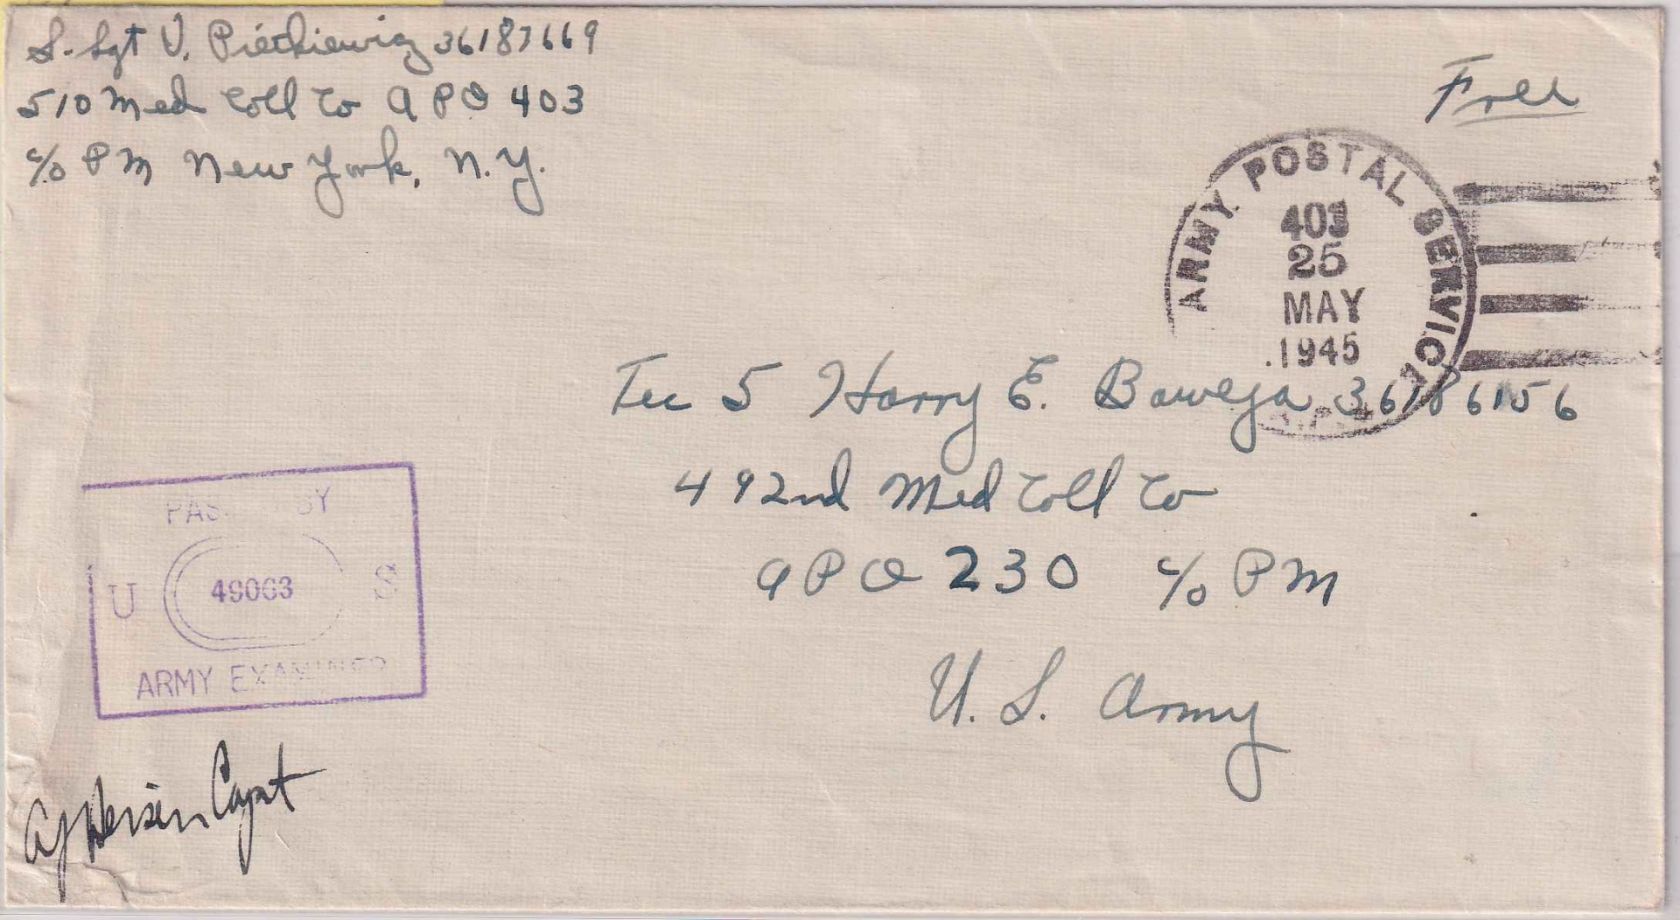 S. Sgt V. Pietkiewicz 36187669
510 Med Coll Co APO 403
c/o PM New York, N.Y.
Free
ARMY POSTAL SERVICE
403
25
MAY
1945
A.P.O.
Tec 5 Harry E. Baweja 36186156
492nd Med Coll Co
APO 230 c/o PM
U.S. Army
PASSED BY
U 49063 S
ARMY EXAMINER
Capt